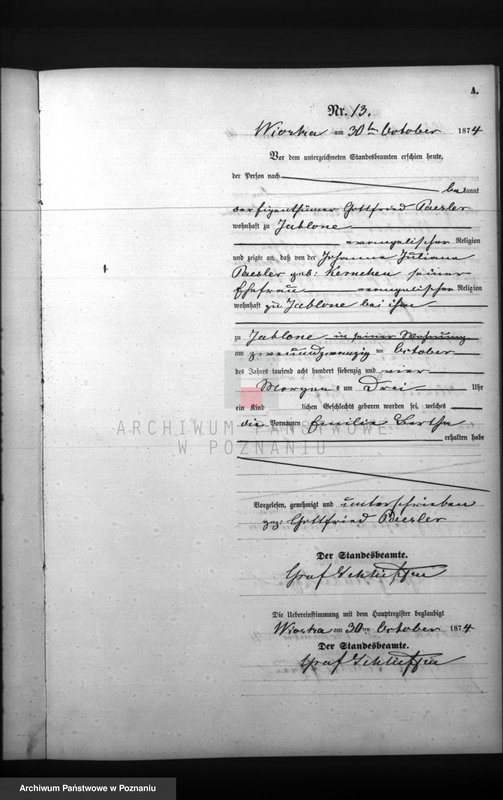 A.
Nr. 13.
Wioska am 30ten October 1874
Vor dem unterzeichneten Standesbeamten erschien heute,
der Person nach
bekannt
der Eigenthümer Gottfried Paesler
wohnhaft zu Jablone
evangelischer Religion
und zeigte an, daß von der Johanna Juliana
Paesler geb: Kernchen seiner
Ehefrau evangelischer Religion
wohnhaft zu Jablone bei ihm
zu Jablone in seiner Wohnung
am zweiundzwanzig ten October
des Jahres tausend acht hundert siebenzig und vier
Morgens um Drei Uhr
ein Kind lichen Geschlechts geboren worden sei, welches
die Vornamen Emilie Bertha
erhalten habe
ARCHIWUM PAŃSTWOWE
W POZNANIU
Vorgelesen, genehmigt und unterschrieben
gez: Gottfried Paesler
Der Standesbeamte.
Graf Schlieffen
Die Uebereinstimmung mit dem Hauptregister beglaubigt
Wioska am 30ten October 1874
Der Standesbeamte.
Graf Schlieffen
Archiwum Państwowe w Poznaniu